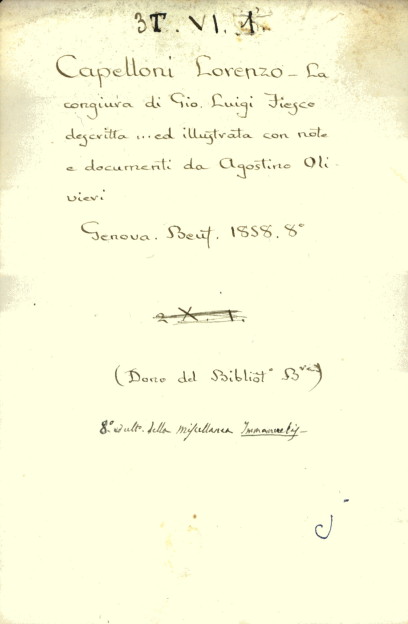 3T. VI. 1.
Capelloni Lorenzo – La
congiura di Gio. Luigi Fiesco
descritta ... ed illustrata con note
e documenti da Agostino Oli-
vieri
Genova. Beuf. 1858. 8°
X. 1.
(Dono del Bibliot° B)
8.° della miscellanea